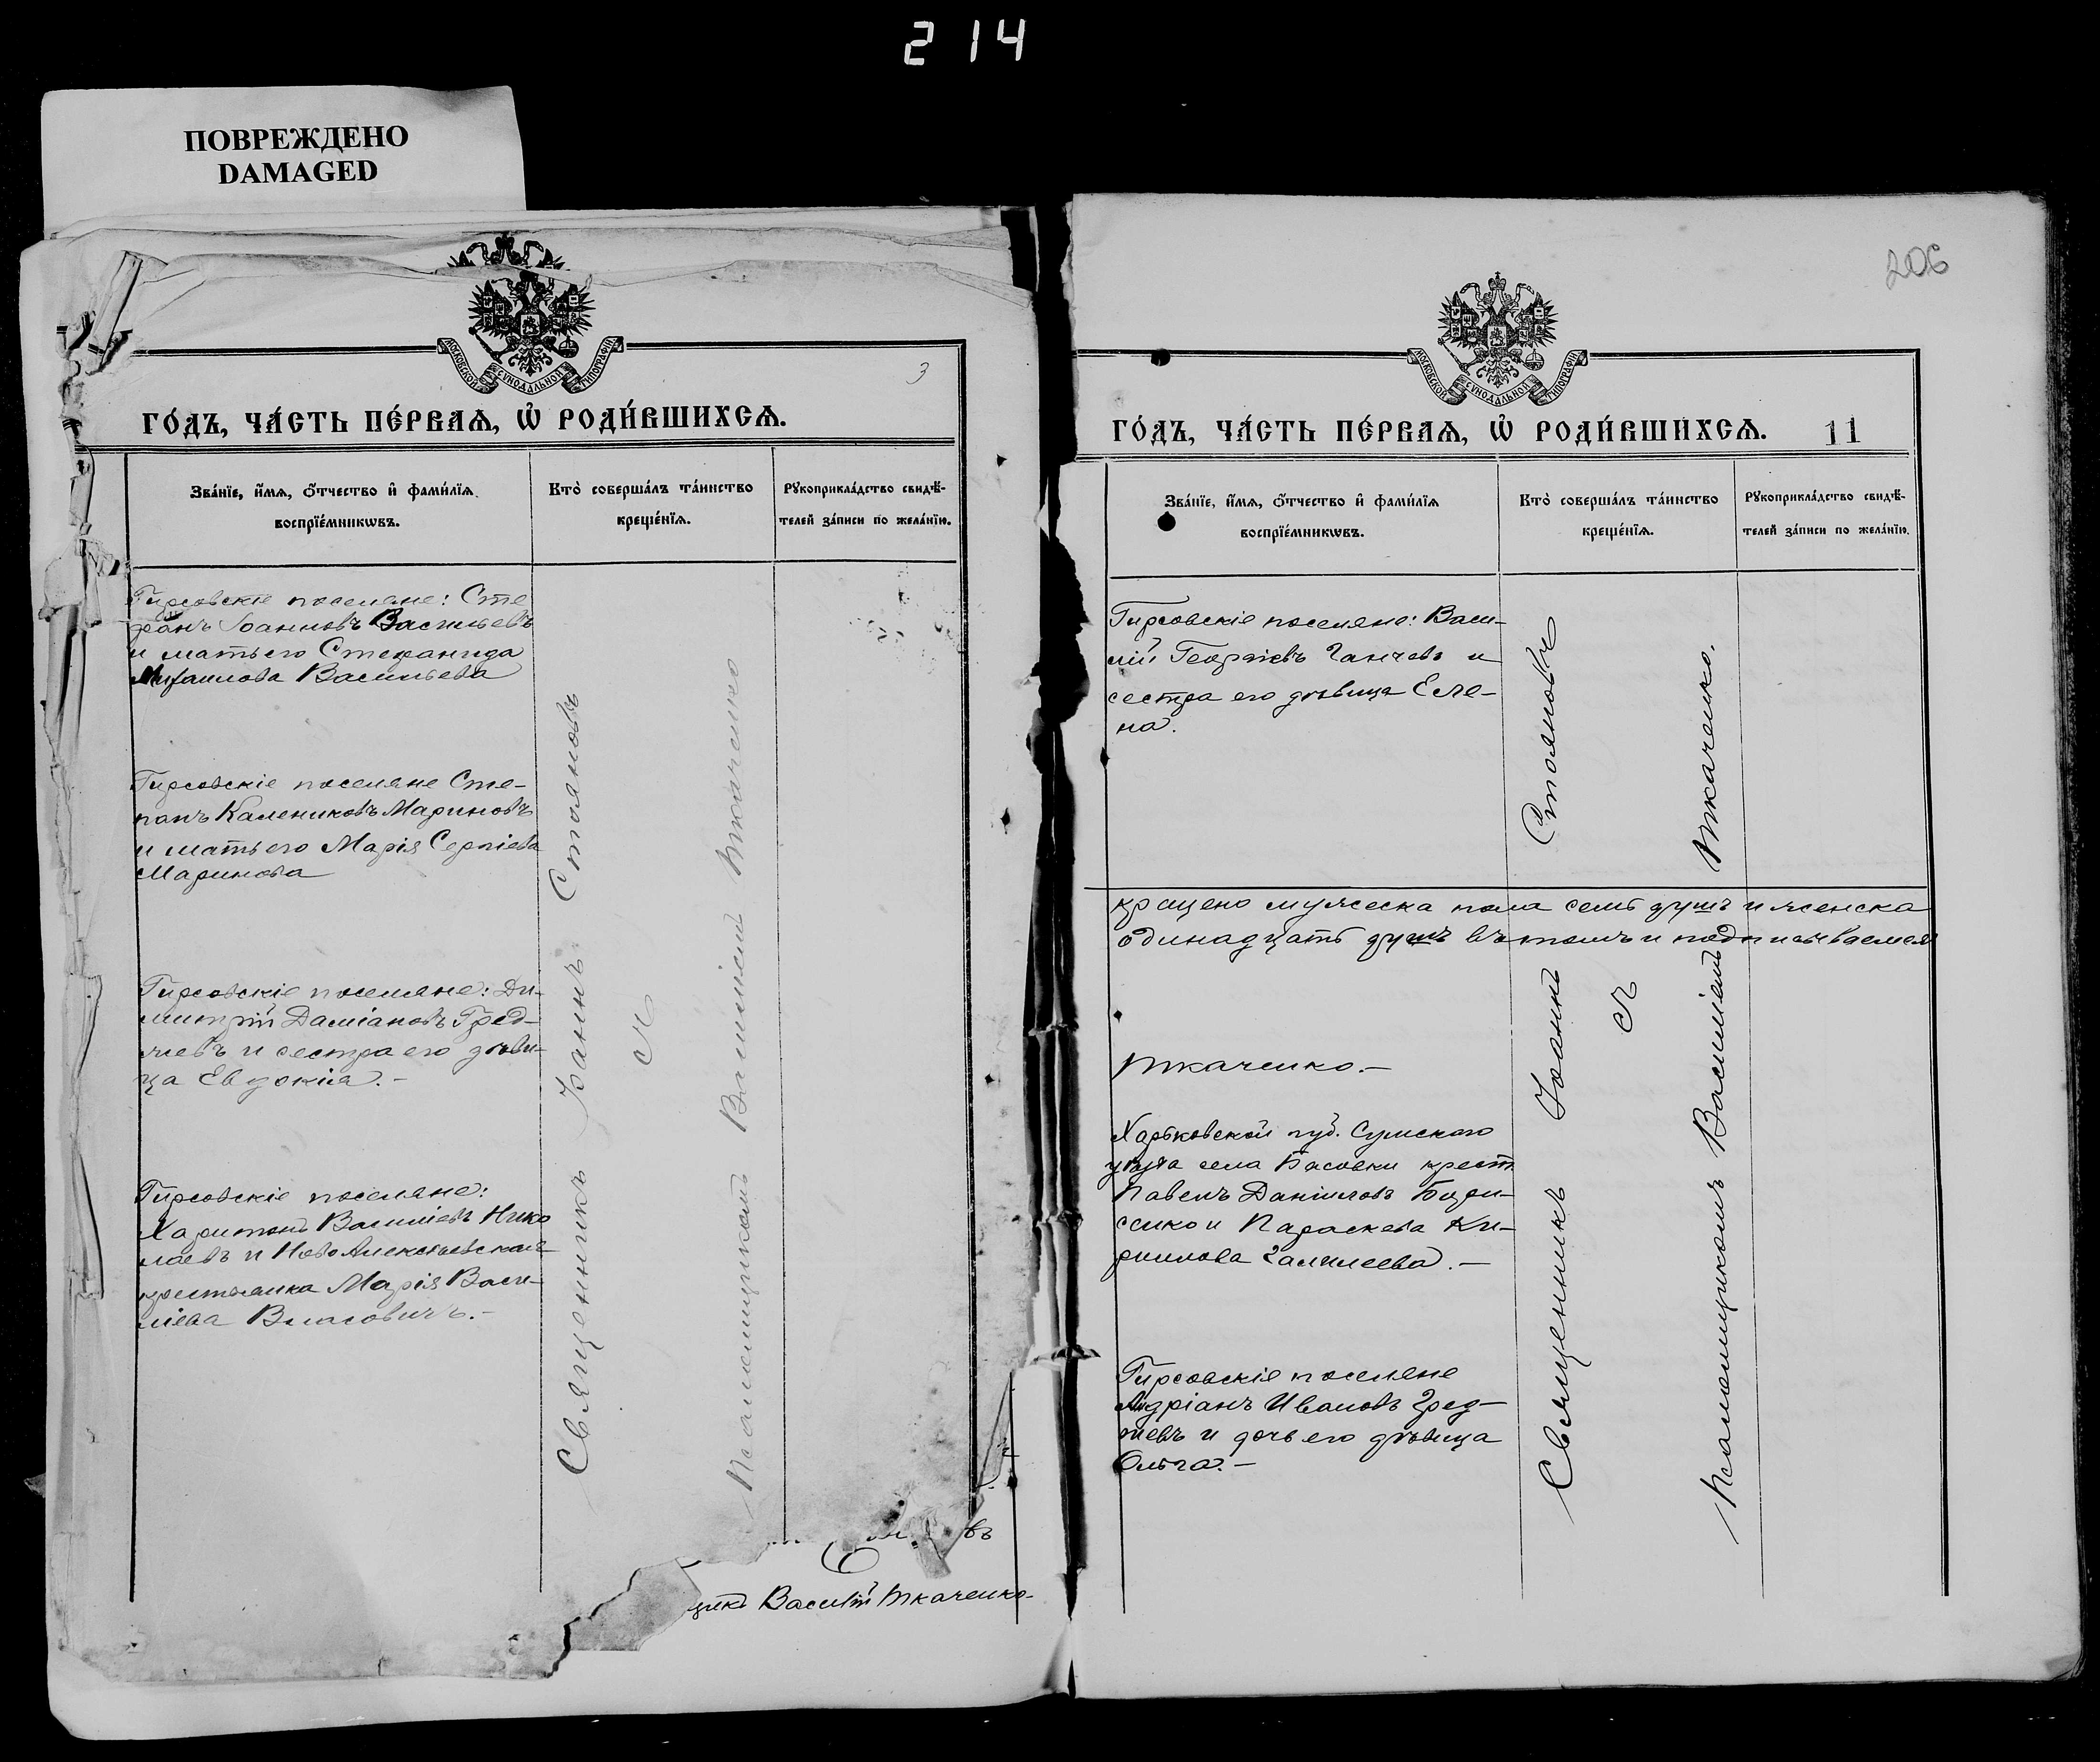 214
ПОВРЕЖДЕНО
DAMAGED
МОСКОВСКОЙ СѴНОДАЛЬНОЙ ТИПОГРАФІИ
3
ГО́ДЪ, ЧА́СТЬ ПЕ́РВАѦ, Ѡ҆ РОДИ́ВШИХСѦ.
Зва́нїе, и҆́мѧ, ѻ҆́тчество и҆ фами́лїѧ
воспрїе́мникѡвъ.
Кто̀ соверша́лъ та́инство
креще́нїѧ.
Рꙋкоприкла́дство свидѣ́-
телей за́писи по жела́нїю.
Гирсовскіе поселяне: Сте
фанъ Іоанновъ Васильевъ
и мать его Стефанида
Михаилова Васильева
Гирсовскіе поселяне Сте-
панъ Калениковъ Мариновъ
и мать его Марія Сергіева
Маринова
Гирсовскіе поселяне: Ди-
митрій Даміановъ Гред-
жевъ и сестра его дѣви-
ца Евдокія.-
Гирсовскіе поселяне:
Харитонъ Василіевъ Нико
лаевъ и Новоалексѣевская
крестьянка Марія Васи-
ліева Власовичъ.-
Священникъ Іоаннъ Стояновъ
съ
Псаломщикомъ Василіемъ Ткаченко
въ
щикъ Василій Ткаченко-
206
МОСКОВСКОЙ СѴНОДАЛЬНОЙ ТИПОГРАФІИ
ГО́ДЪ, ЧА́СТЬ ПЕ́РВАѦ, Ѡ҆ РОДИ́ВШИХСѦ. 11
Зва́нїе, и҆́мѧ, ѻ҆́тчество и҆ фами́лїѧ
воспрїе́мникѡвъ.
Кто̀ соверша́лъ та́инство
креще́нїѧ.
Рꙋкоприкла́дство свидѣ́-
телей за́писи по жела́нїю.
Гирсовскіе поселяне: Васи-
лій Георгіевъ Ганчевъ и
сестра его дѣвица Еле-
на.
Стояновъ
Ткаченко.
крещено мужеска пола семь душъ и женска
одинадцать душъ въ томъ и подписываемся
Ткаченко.-
Харьковской губ. Сумского
уѣзда села Басовки крест.
Павелъ Даніиловъ
и Параскева Ки-
риллова Галилеева.-
Гирсовскіе поселяне
Андріанъ Ивановъ Гред-
жевъ и дочь его дѣвица
Ольга.-
Священникъ Іоаннъ
съ
Псаломщикомъ Василіемъ